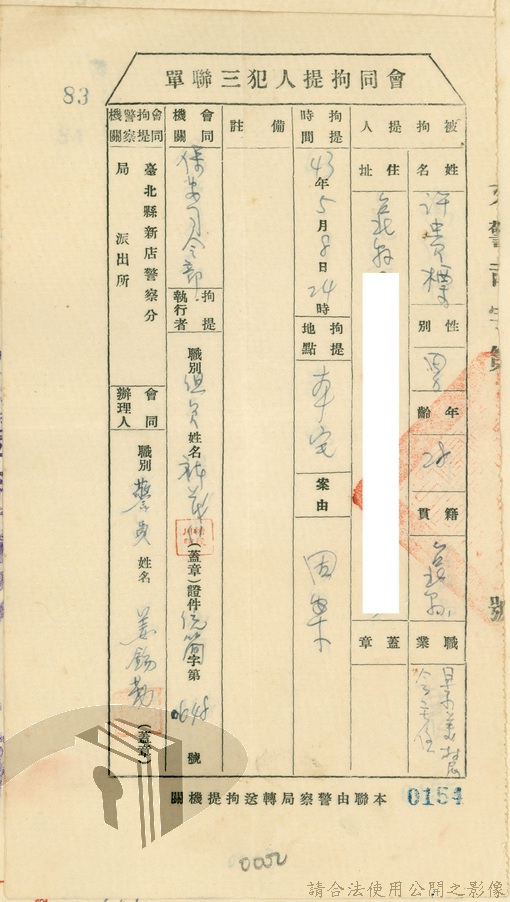 83
會同拘提人犯三聯單
被拘提人
姓名
許貴標
性別
男
年齡
28
籍貫
台北縣
職業
景美村
住址
台北縣
蓋章
拘提時間
43年5月8日24時
拘提地點
本宅
案由
因案
備註
會同機關
保安司令部
拘提執行者
職別 組員 姓名
(蓋章)證件
字第0648號
會同拘提警察機關
臺北縣新店警察分局
派出所
會同辦理人
職別 警員 姓名 姜錫勤 (蓋章)
本聯由警察局轉送拘提機關
0154
號
請合法使用公開之影像